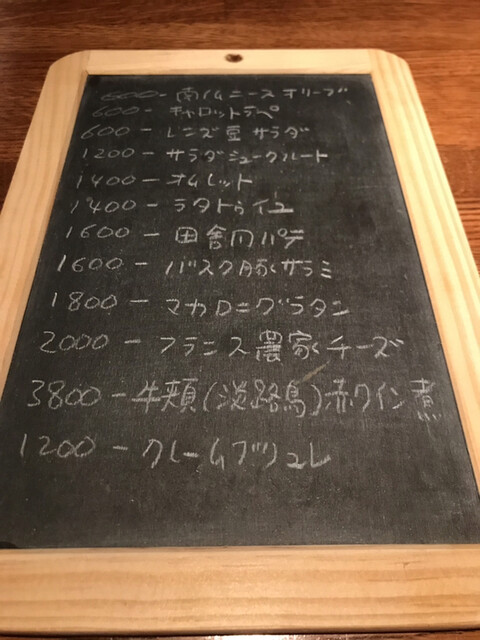 600- 南仏ニースオリーブ
600- キャロットラペ
600- レンズ豆サラダ
1200- サラダシュークルート
1400- オムレット
1400- ラタトゥイユ
1600- 田舎風パテ
1600- バスク豚サラミ
1800- マカロニグラタン
2000- フランス農家チーズ
3800-牛頬(淡路島)赤ワイン煮
1200- クレームブリュレ